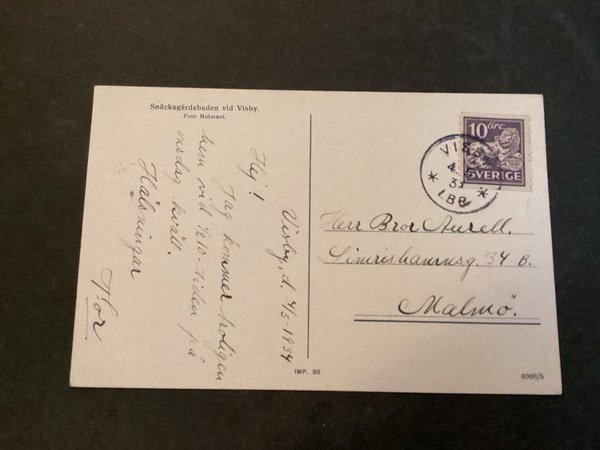 Snäcksgärdsbaden vid Visby.
Foto Holmert.
Visby, d. 4/5. 1934
Hej!
Jag kommer troligen
hem vid ½ 10-tiden på
onsdag kväll.
Hälsningar
Thor
10 ÖRE
SVERIGE
VISBY
4. 5
LBB
Herr Bror Aurell.
Simrishamnsg. 34 B.
Malmö.
IMP. 33
6008/5